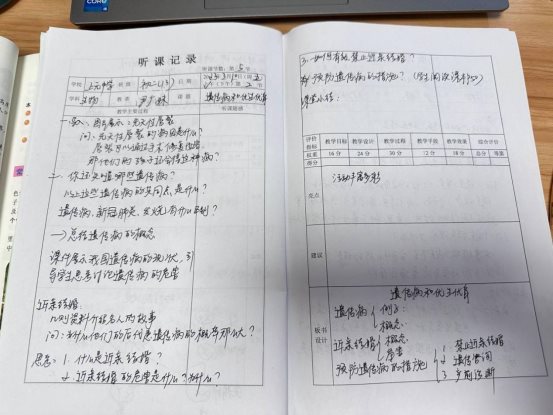 CORE i5
听课记录
听课节数：第 5 节
学校 上元中学 班级 初二(3) 日期
学科 生物 教者 课题 遗传病和优生优育
教学主要过程 听课随感
一、导入：图片展示：先天性唇裂
问：先天性唇裂的病因是什么？
唇裂可以通过手术修复治愈
那他们的孩子还会得这种病？
二、你还知道哪些遗传病？
以上这些遗传病的共同点是什么？
遗传病，新冠肺炎，发烧有什么区别？
→总结遗传病的概念
课件展示我国遗传病的现状，引
导学生思考讨论遗传病的危害
近亲结婚：
几则资料介绍名人的故事
问：为什么他们的后代患遗传病的概率那么大？
思考：1. 什么是近亲结婚？
2. 近亲结婚的危害是什么？为什么？
3. 如何有效禁止近亲结婚？
预防遗传病的措施？
课堂小结：
评价指标 教学目标 教学设计 教学过程 教学手段 教学效果 综合评价
权重 16 分 24 分 30 分 12 分 18 分 总分 等第
得分
亮点 活动丰富多彩
建议
板书设计
遗传病和优生优育
遗传病 例子：
概念：
近亲结婚 概念
危害
预防遗传病的措施 1 禁止近亲结婚
2 遗传咨询
3 产前诊断